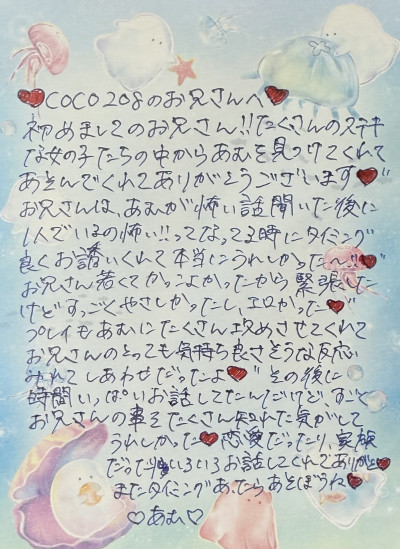 ♥COCO208のお兄さんへ♥
初めましてのお兄さん!!たくさんのステキ
な女の子たちの中からあむを見つけてくれて
あそんでくれてありがとうございます♥"
お兄さんは、あむが怖い話聞いた後に
1人でいるの怖い!!ってなってる時にタイミング
良くお誘いくれて本当にうれしかったん!!♥"
お兄さん若くてかっこよかったから緊張した
けどすっごくやさしかったし、エロかった♥"
プレイもあむにたくさん攻めさせてくれて
お兄さんのとっても気持ち良さそうな反応
みれてしあわせだったよ♥"その後に
時間いっぱいお話してたんだけど、すごく
お兄さんの事をたくさん知れた気がして
うれしかった♥恋愛だったり、家族
だったりいろいろお話してくれてありがと♥
またタイミングあったらあそぼうね♥
♡あむ♡